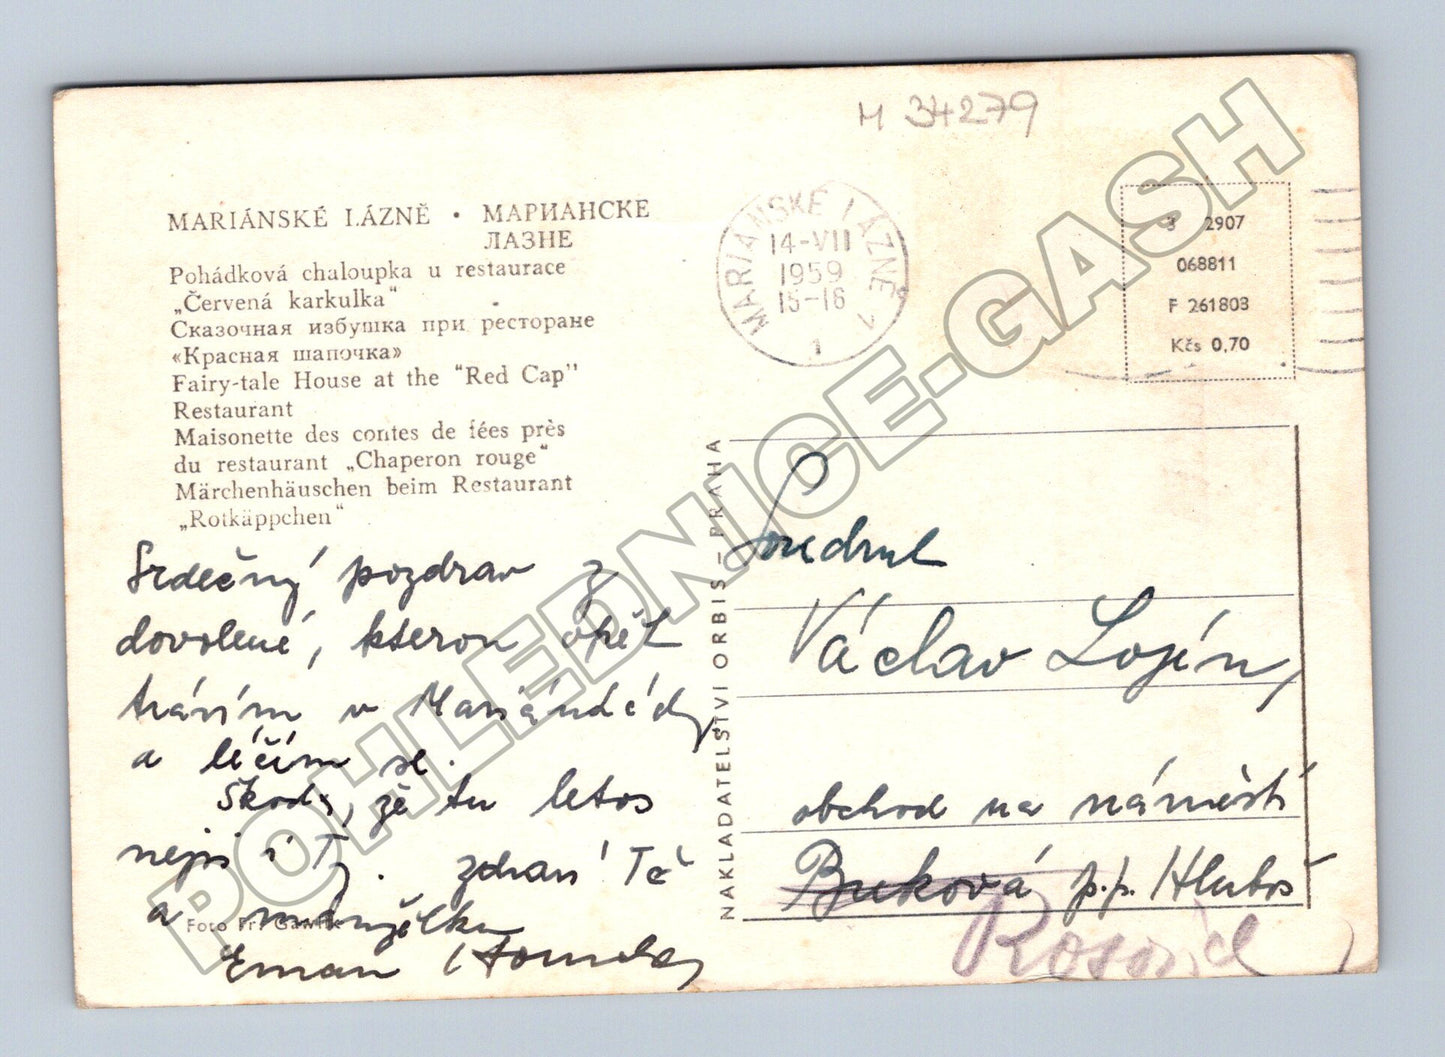 M 34279
MARIÁNSKÉ LÁZNĚ • МАРИАНСКЕ
ЛАЗНЕ
Pohádková chaloupka u restaurace
„Červená karkulka“
Сказочная избушка при ресторане
«Красная шапочка»
Fairy-tale House at the "Red Cap"
Restaurant
Maisonette des contes de fées près
du restaurant „Chaperon rouge“
Märchenhäuschen beim Restaurant
„Rotkäppchen“
MARIÁNSKÉ LÁZNĚ 1
14-VII
1959
15-16
1
2907
068811
F 261803
Kčs 0,70
Srdečný pozdrav z
dovolené, kterou opět
trávím v Mariánd
a léčím se.
Škoda, že tu letos
nejsi i Ty. zdraví Tě
a manželku
Eman
Foto Fr.
NAKLADATELSTVÍ ORBIS – PRAHA
Soudruh
Václav Lojín,
obchod na náměstí
Buková p.p. Hluboš
POHLEDNICE-GASH